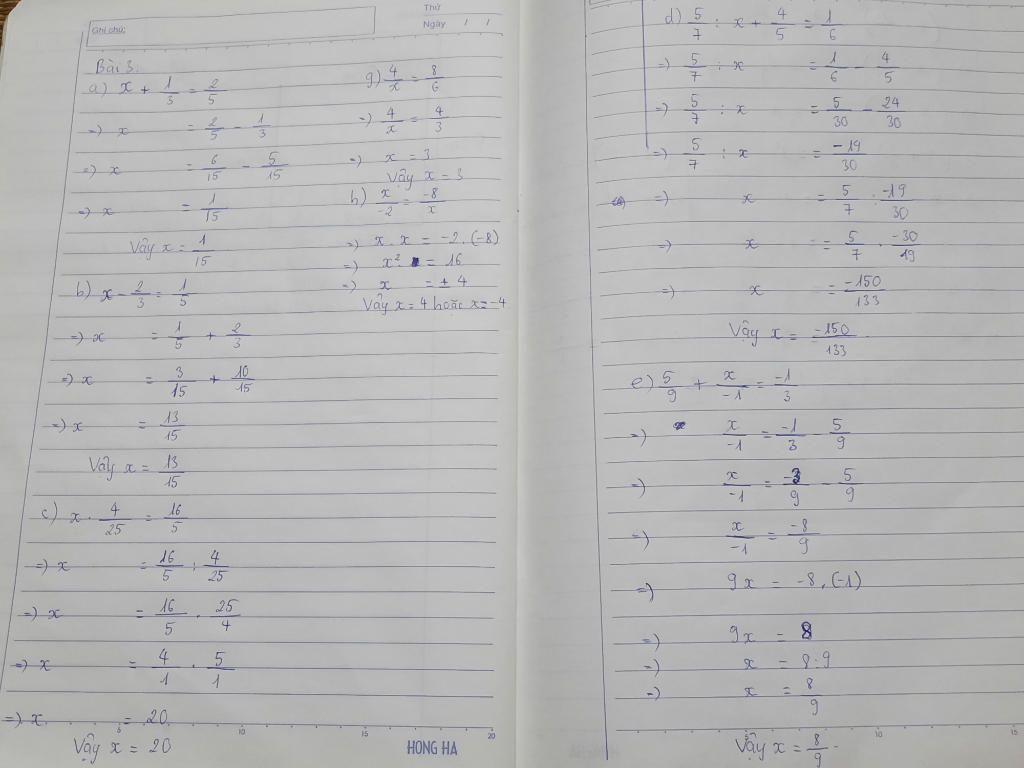 Ghi chú:
Thứ
Ngày / /
Bài 3.
a) x + 1/3 = 2/5
=) x = 2/5 - 1/3
=) x = 6/15 - 5/15
=) x = 1/15
Vậy x = 1/15
b) x - 2/3 = 1/5
=) x = 1/5 + 2/3
=) x = 3/15 + 10/15
=) x = 13/15
Vậy x = 13/15
c) x . 4/25 = 16/5
=) x = 16/5 : 4/25
=) x = 16/5 . 25/4
=) x = 4/1 . 5/1
=) x = 20
Vậy x = 20
g) 4/x = 8/6
=) 4/x = 4/3
=) x = 3
Vậy x = 3
h) x/-2 = -8/x
=) x . x = -2 . (-8)
=) x² = 16
=) x = ± 4
Vậy x = 4 hoặc x = -4
5 10 15 20
HONG HA
d) 5/7 : x + 4/5 = 1/6
=) 5/7 : x = 1/6 - 4/5
=) 5/7 : x = 5/30 - 24/30
=) 5/7 : x = -19/30
=) x = 5/7 : -19/30
=) x = 5/7 . -30/19
=) x = -150/133
Vậy x = -150/133
e) 5/9 + x/-1 = -1/3
=) x/-1 = -1/3 - 5/9
=) x/-1 = -3/9 - 5/9
=) x/-1 = -8/9
=) 9x = -8 . (-1)
=) 9x = 8
=) x = 8 : 9
=) x = 8/9
Vậy x = 8/9
5 10 15